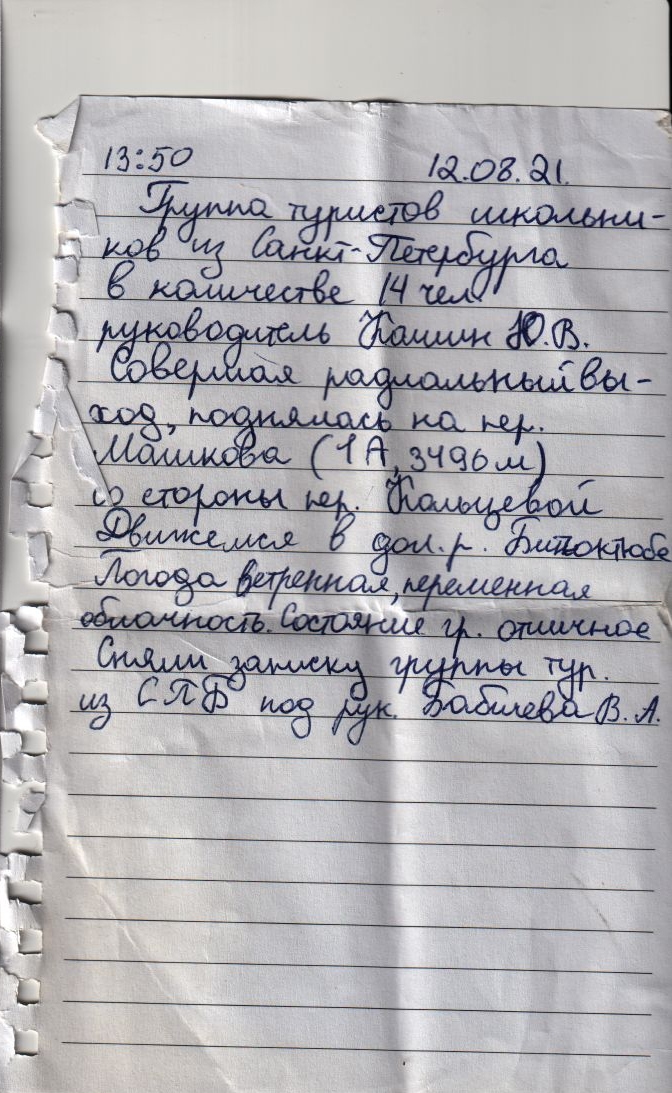 13:50 12.08.21.
Группа туристов школьни-
ков из Санкт-Петербурга
в количестве 14 чел.
руководитель Кашин Ю.В.
Совершая радиальный вы-
ход, поднялась на пер.
Машкова (1А, 3496м)
со стороны пер. Кольцевой
Движемся в дол.р. Битюктюбе
Погода ветренная, переменная
облачность. Состояние гр. отличное
Сняли записку группы тур.
из СПБ под рук. Бабичева В.А.